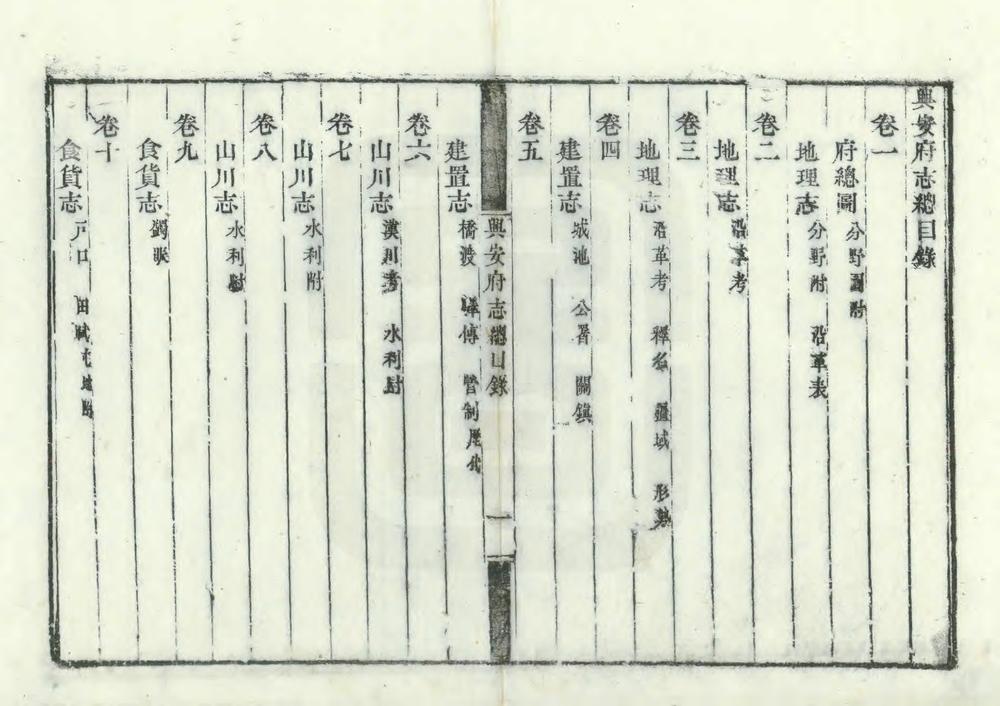 興安府志總目錄
卷一
府總圖 分野圖附
地理志 分野附 沿革表
卷二
地理志 沿革考
卷三
地理志 沿革考 釋名 疆域 形勢
卷四
建置志 城池 公署 關鎮
卷五
建置志 橋渡 驛傳 營制歷代
興安府志總目錄 一
卷六
山川志 漢川考 水利附
卷七
山川志 水利附
卷八
山川志 水利附
卷九
食貨志 蠲賑
卷十
食貨志 戶口 田賦屯地附